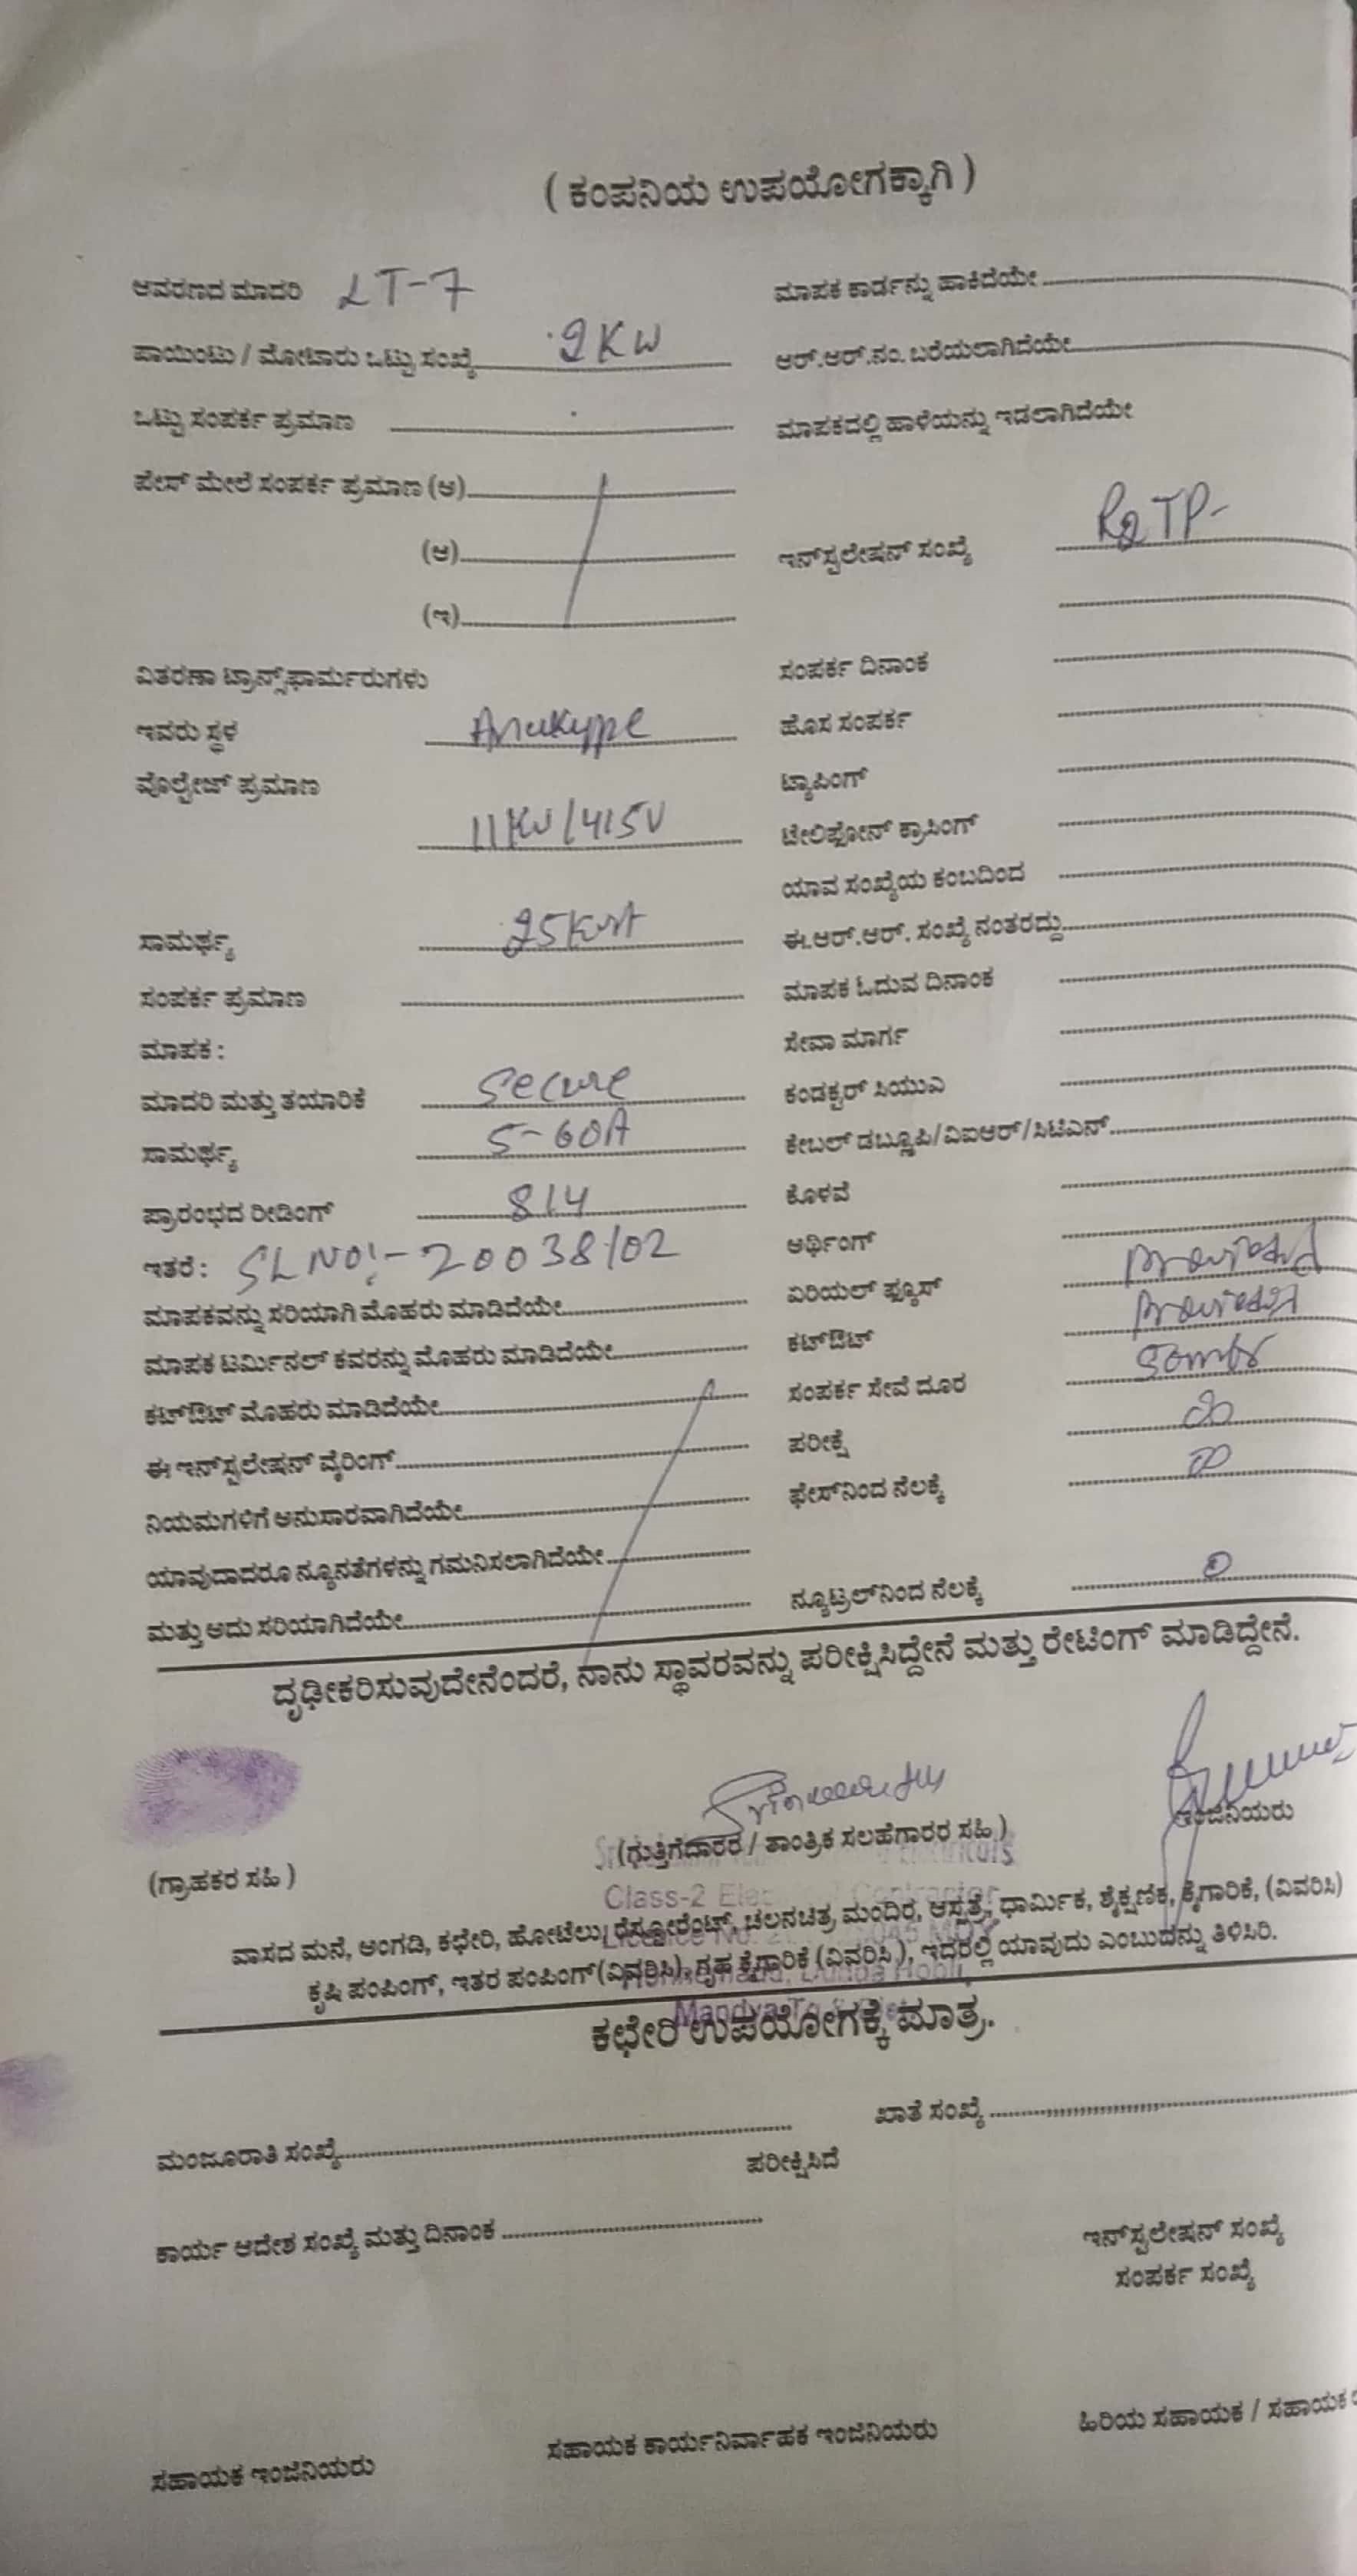 ( ಕಂಪನಿಯ ಉಪಯೋಗಕ್ಕಾಗಿ )
ಆವರಣದ ಮಾದರಿ LT-7
ಪಾಯಿಂಟು / ಮೋಟಾರು ಒಟ್ಟು ಸಂಖ್ಯೆ 2KW
ಒಟ್ಟು ಸಂಪರ್ಕ ಪ್ರಮಾಣ
ಪೇಸ್ ಮೇಲೆ ಸಂಪರ್ಕ ಪ್ರಮಾಣ (ಅ)
(ಆ)
(ಇ)
ವಿತರಣಾ ಟ್ರಾನ್ಸ್‌ಫಾರ್ಮರುಗಳು
ಇವರು ಸ್ಥಳ
ವೊಲ್ಟೇಜ್ ಪ್ರಮಾಣ
11KV/415V
ಸಾಮರ್ಥ್ಯ 25KVA
ಸಂಪರ್ಕ ಪ್ರಮಾಣ
ಮಾಪಕ :
ಮಾದರಿ ಮತ್ತು ತಯಾರಿಕೆ Secure
ಸಾಮರ್ಥ್ಯ 5-60A
ಪ್ರಾರಂಭದ ರೀಡಿಂಗ್ 814
ಇತರೆ : SL NO:- 20038102
ಮಾಪಕವನ್ನು ಸರಿಯಾಗಿ ಮೊಹರು ಮಾಡಿದೆಯೇ
ಮಾಪಕ ಟರ್ಮಿನಲ್ ಕವರನ್ನು ಮೊಹರು ಮಾಡಿದೆಯೇ
ಕಟ್‌ಔಟ್ ಮೊಹರು ಮಾಡಿದೆಯೇ
ಈ ಇನ್‌ಸ್ಟಲೇಷನ್ ವೈರಿಂಗ್
ನಿಯಮಗಳಿಗೆ ಅನುಸಾರವಾಗಿದೆಯೇ
ಯಾವುದಾದರೂ ನ್ಯೂನತೆಗಳನ್ನು ಗಮನಿಸಲಾಗಿದೆಯೇ
ಮತ್ತು ಅದು ಸರಿಯಾಗಿದೆಯೇ
ಮಾಪಕ ಕಾರ್ಡನ್ನು ಹಾಕಿದೆಯೇ
ಆರ್.ಆರ್.ನಂ. ಬರೆಯಲಾಗಿದೆಯೇ
ಮಾಪಕದಲ್ಲಿ ಹಾಳೆಯನ್ನು ಇಡಲಾಗಿದೆಯೇ
ಇನ್‌ಸ್ಟಲೇಷನ್ ಸಂಖ್ಯೆ
ಸಂಪರ್ಕ ದಿನಾಂಕ
ಹೊಸ ಸಂಪರ್ಕ
ಟ್ಯಾಪಿಂಗ್
ಟೇಲಿಫೋನ್ ಕ್ರಾಸಿಂಗ್
ಯಾವ ಸಂಖ್ಯೆಯ ಕಂಬದಿಂದ
ಈ.ಆರ್.ಆರ್. ಸಂಖ್ಯೆ ನಂತರದ್ದು
ಮಾಪಕ ಓದುವ ದಿನಾಂಕ
ಸೇವಾ ಮಾರ್ಗ
ಕಂಡಕ್ಟರ್ ಸಿಯುಎ
ಕೇಬಲ್ ಡಬ್ಲ್ಯೂಪಿ/ವಿಐಆರ್/ಸಿಟಿಎನ್
ಕೊಳವೆ
ಅರ್ಥಿಂಗ್
ಏರಿಯಲ್ ಫ್ಯೂಸ್
ಕಟ್‌ಔಟ್
ಸಂಪರ್ಕ ಸೇವೆ ದೂರ
ಪರೀಕ್ಷೆ
ಫೇಸ್‌ನಿಂದ ನೆಲಕ್ಕೆ
ನ್ಯೂಟ್ರಲ್‌ನಿಂದ ನೆಲಕ್ಕೆ
ದೃಢೀಕರಿಸುವುದೇನೆಂದರೆ, ನಾನು ಸ್ಥಾವರವನ್ನು ಪರೀಕ್ಷಿಸಿದ್ದೇನೆ ಮತ್ತು ರೇಟಿಂಗ್ ಮಾಡಿದ್ದೇನೆ.
(ಗ್ರಾಹಕರ ಸಹಿ )
(ಗುತ್ತಿಗೆದಾರರ / ತಾಂತ್ರಿಕ ಸಲಹೆಗಾರರ ಸಹಿ )
ಇಂಜಿನಿಯರು
Class-2
ವಾಸದ ಮನೆ, ಅಂಗಡಿ, ಕಛೇರಿ, ಹೋಟೆಲು, ರೆಸ್ಟೋರೆಂಟ್, ಚಲನಚಿತ್ರ ಮಂದಿರ, ಆಸ್ಪತ್ರೆ, ಧಾರ್ಮಿಕ, ಶೈಕ್ಷಣಿಕ, ಕೈಗಾರಿಕೆ, (ವಿವರಿಸಿ)
ಕೃಷಿ ಪಂಪಿಂಗ್, ಇತರ ಪಂಪಿಂಗ್(ವಿವರಿಸಿ), ಗೃಹ ಕೈಗಾರಿಕೆ (ವಿವರಿಸಿ ), ಇದರಲ್ಲಿ ಯಾವುದು ಎಂಬುದನ್ನು ತಿಳಿಸಿರಿ.
ಕಛೇರಿ ಉಪಯೋಗಕ್ಕೆ ಮಾತ್ರ.
ಮಂಜೂರಾತಿ ಸಂಖ್ಯೆ
ಖಾತೆ ಸಂಖ್ಯೆ
ಪರೀಕ್ಷಿಸಿದೆ
ಕಾರ್ಯ ಆದೇಶ ಸಂಖ್ಯೆ ಮತ್ತು ದಿನಾಂಕ
ಇನ್‌ಸ್ಟಲೇಷನ್ ಸಂಖ್ಯೆ
ಸಂಪರ್ಕ ಸಂಖ್ಯೆ
ಸಹಾಯಕ ಇಂಜಿನಿಯರು
ಸಹಾಯಕ ಕಾರ್ಯನಿರ್ವಾಹಕ ಇಂಜಿನಿಯರು
ಹಿರಿಯ ಸಹಾಯಕ / ಸಹಾಯಕ